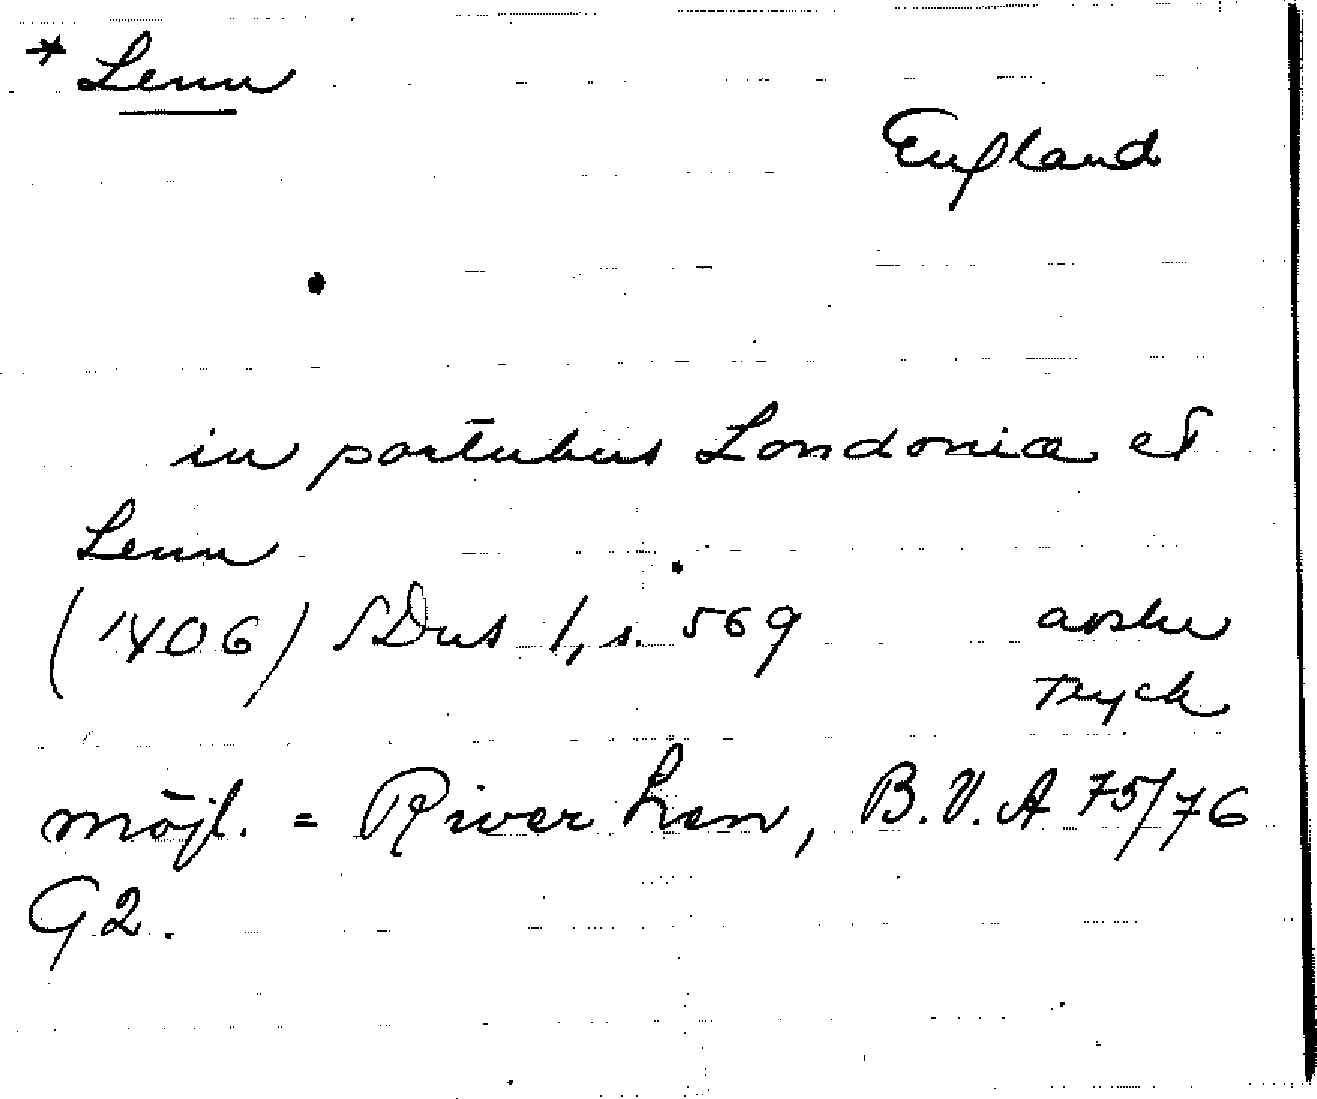 * Lenn
England
in portubus Londonia et
Lenn
(1406) SDns 1, s. 569 avskr
tryck
möjl. = River Len, B.V. A 75/76
G2.